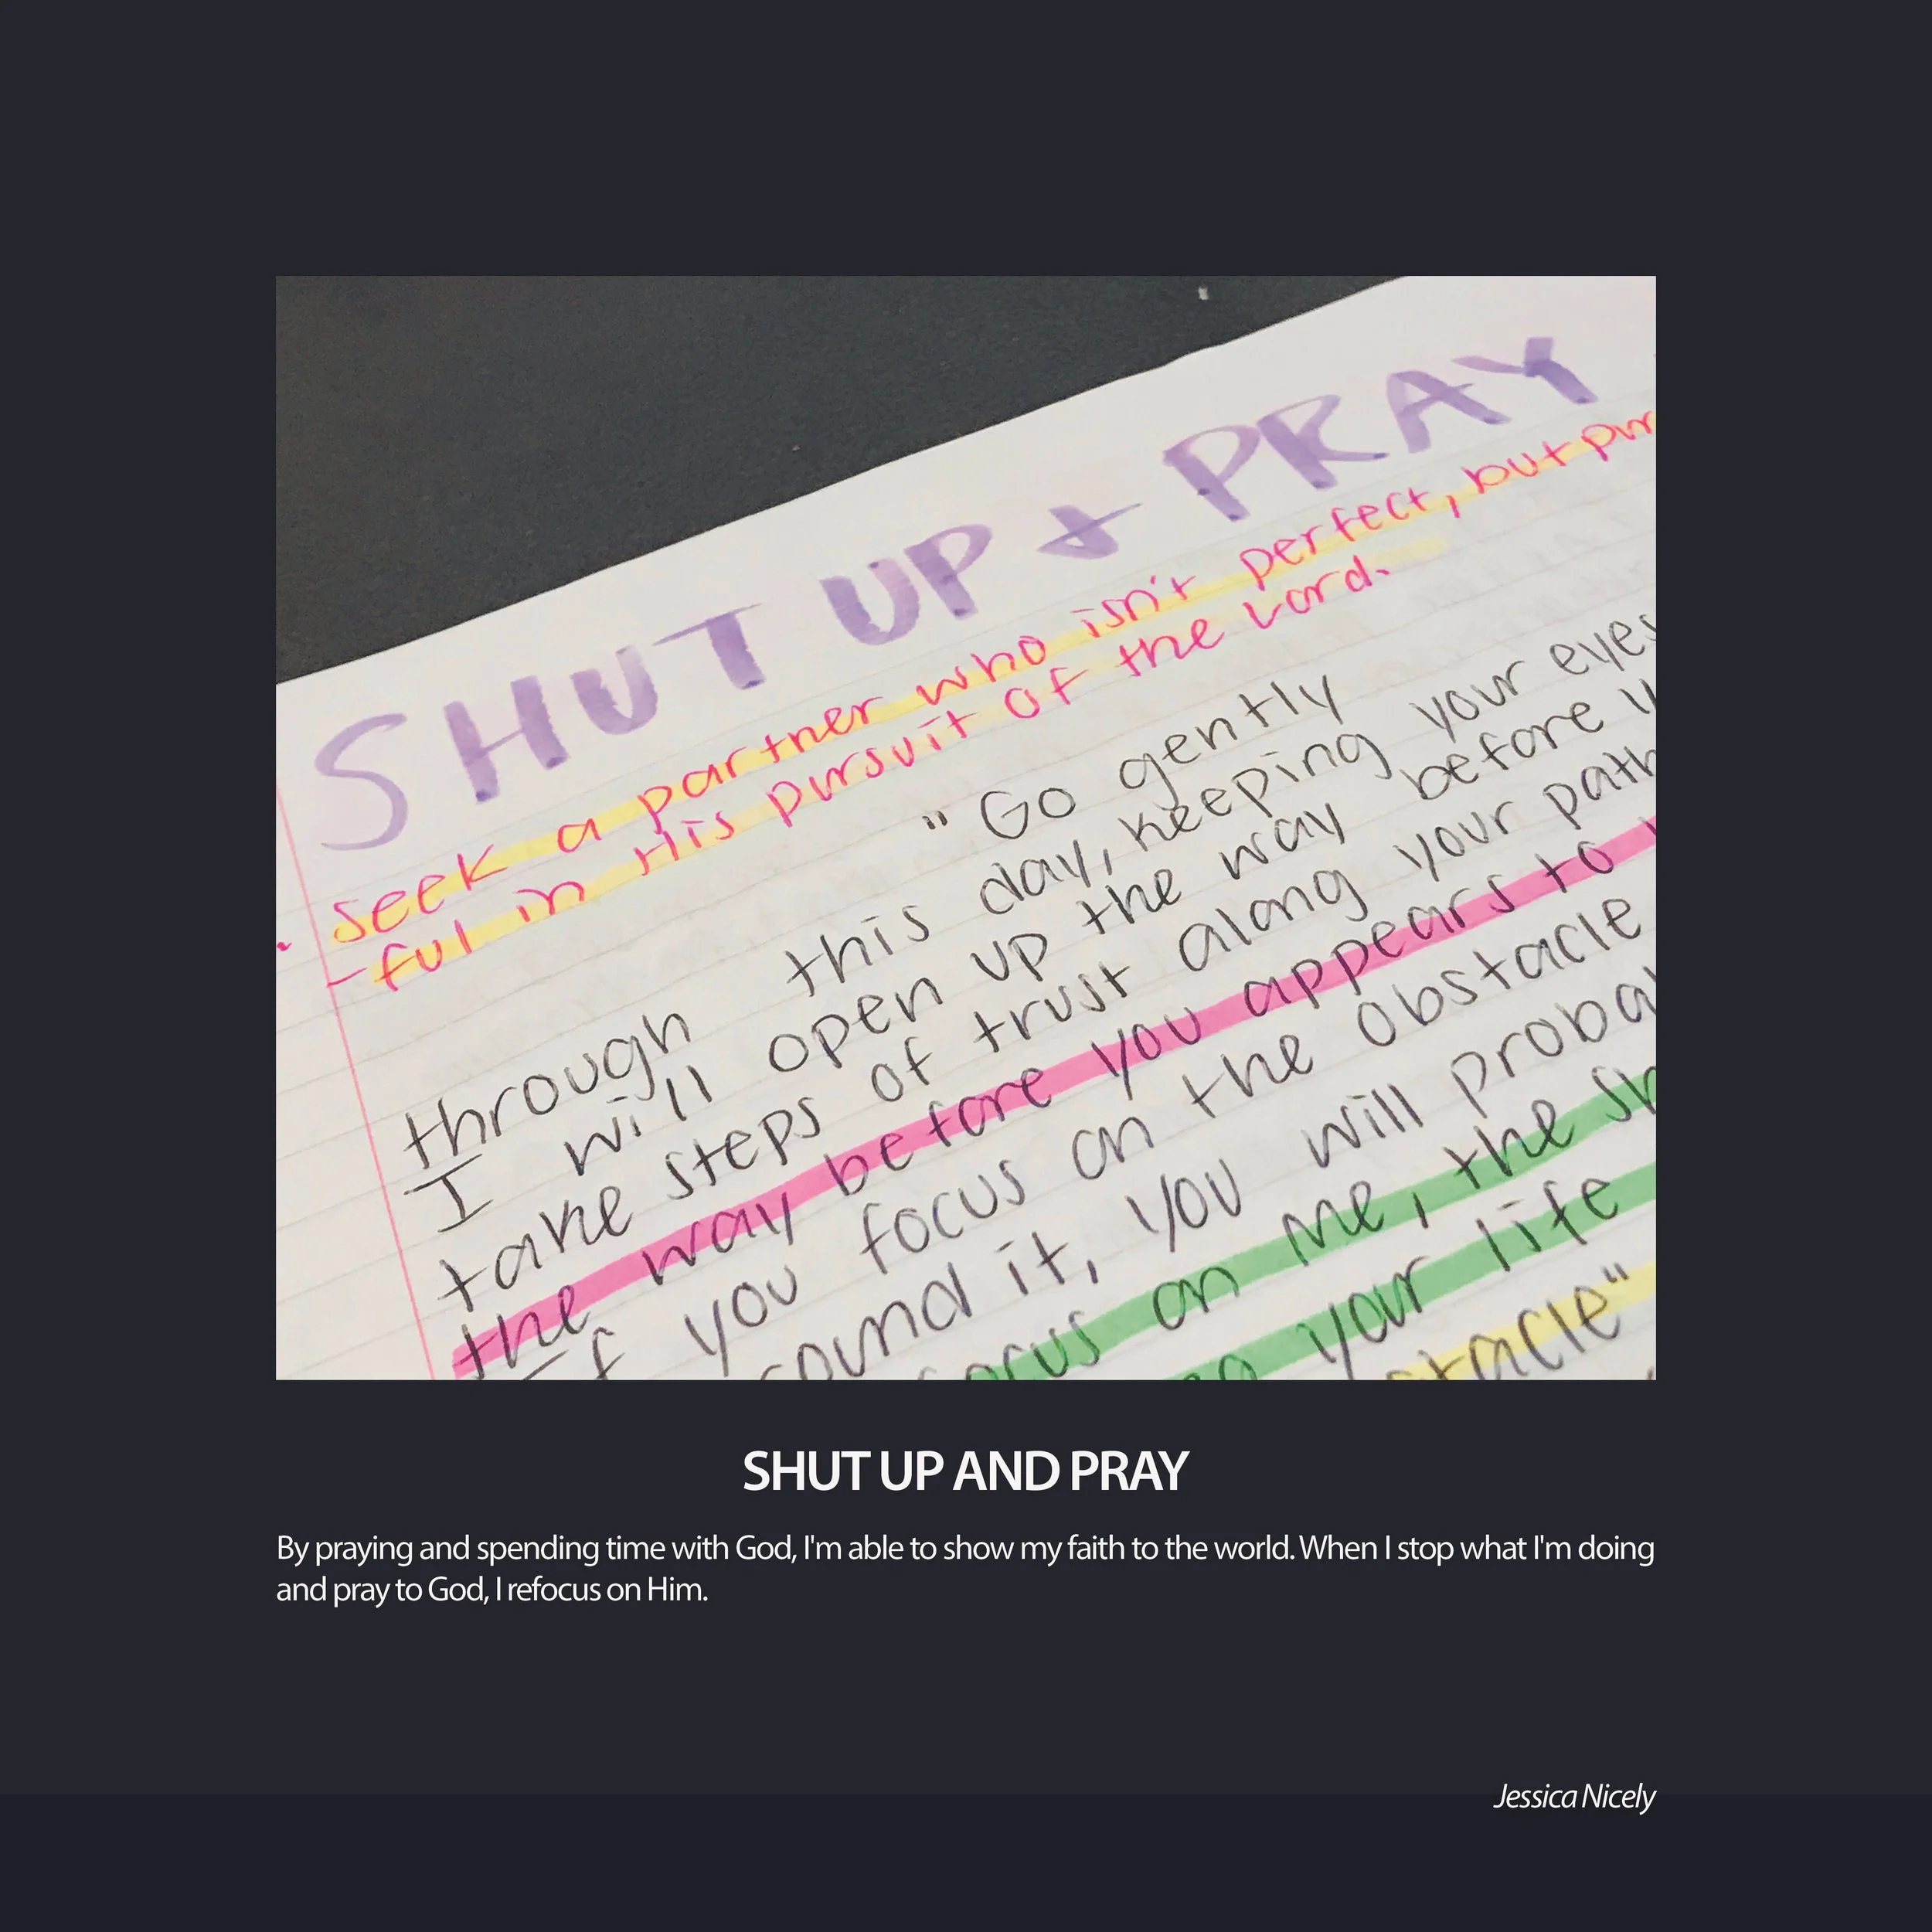 SHUT UP & PRAY
seek a partner who isn't perfect, but pur
-ful in His pursuit of the Lord.
"Go gently
through this day, keeping your eyes
I will open up the way before
take steps of trust along your path
the way before you appears to
If you focus on the obstacle
you will proba
focus on me, the
your life
SHUT UP AND PRAY
By praying and spending time with God, I'm able to show my faith to the world. When I stop what I'm doing
and pray to God, I refocus on Him.
Jessica Nicely